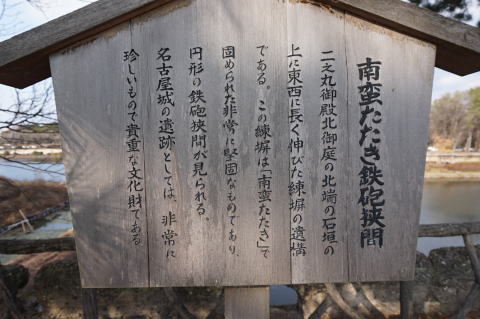 南蛮たたき鉄砲狭間
二之丸御殿北御庭の北端の石垣の
上に東西に長く伸びた練塀の遺構
である。この練塀は「南蛮たたき」で
固められた非常に堅固なものであり、
円形の鉄砲狭間が見られる。
名古屋城の遺跡としては、非常に
珍しいもので貴重な文化財である